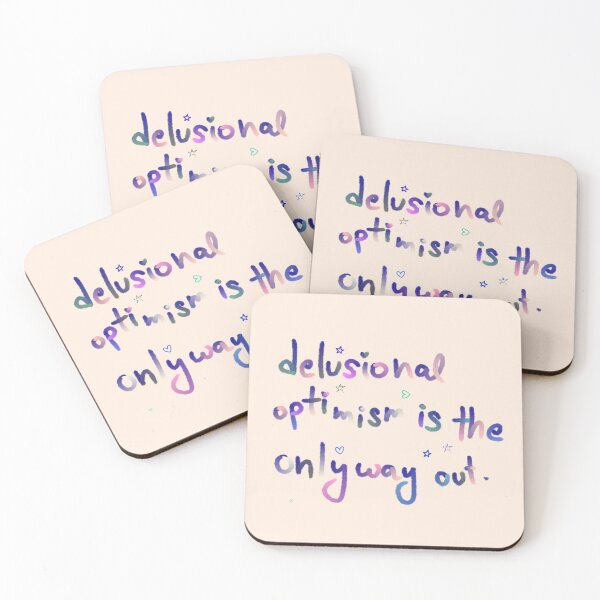 delusional
is
delusional
optimism is the
only way out.
delusional
optimism is the
only way
delusional
optimism is the
only way out.